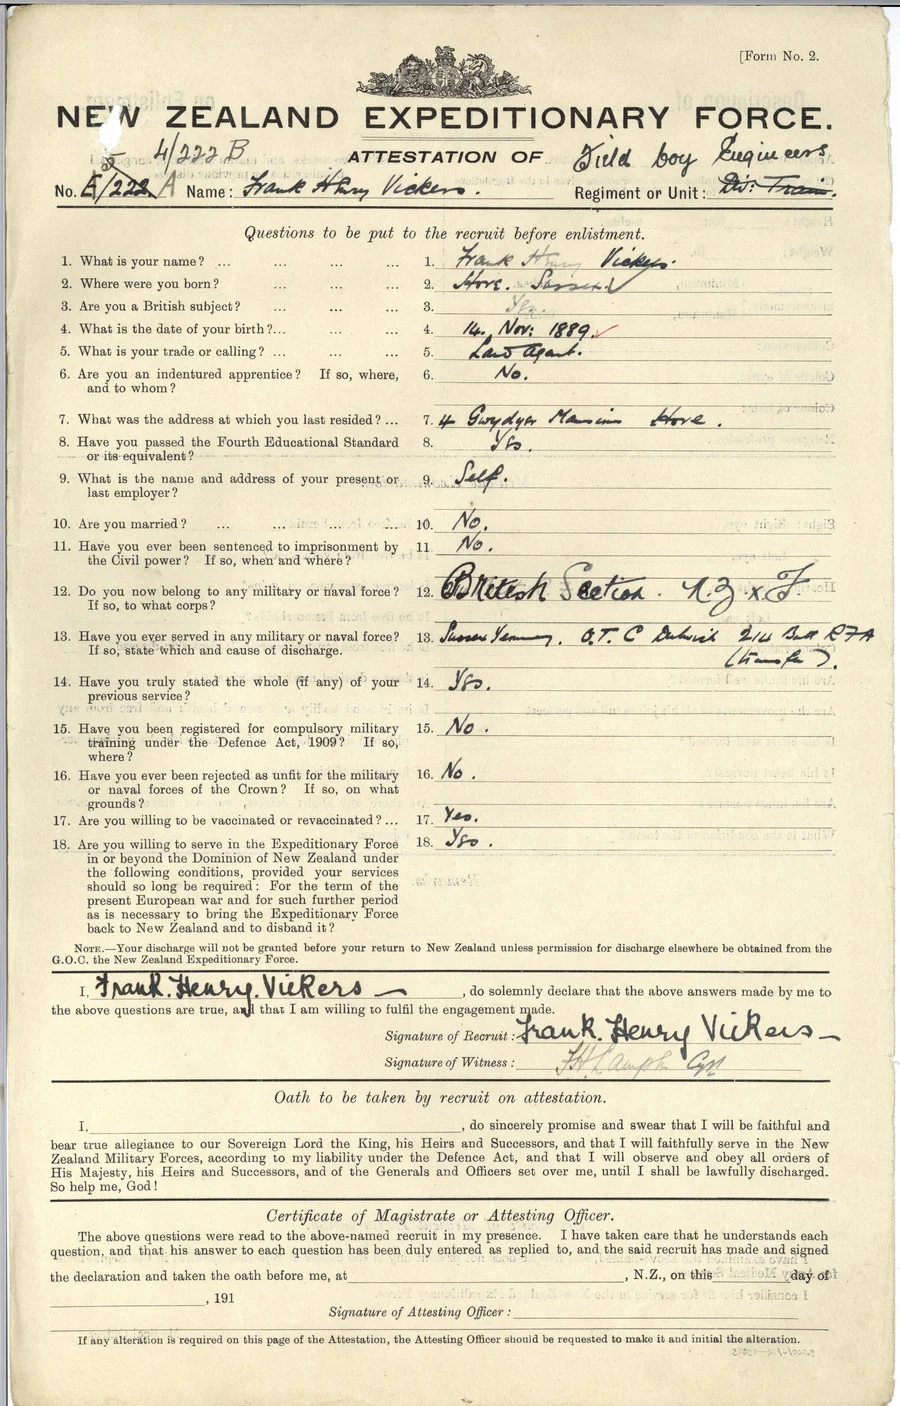 [Form No. 2.
NEW ZEALAND EXPEDITIONARY FORCE.
4/222 B ATTESTATION OF Field Coy Engineers
No. 5/222 A Name: Frank Henry Vickers. Regiment or Unit: Div: Train.
Questions to be put to the recruit before enlistment.
1. What is your name? ... ... ... ... 1. Frank Henry Vickers.
2. Where were you born? ... ... ... 2. Hove. Sussex.
3. Are you a British subject? ... ... 3. Yes.
4. What is the date of your birth?... ... ... 4. 14. Nov: 1889.
5. What is your trade or calling? ... ... ... 5. Land Agent.
6. Are you an indentured apprentice? If so, where, 6. No.
and to whom?
7. What was the address at which you last resided? ... 7. 4 Gwydyr Mansions Hove.
8. Have you passed the Fourth Educational Standard 8. Yes.
or its equivalent?
9. What is the name and address of your present or 9. Self.
last employer?
10. Are you married? ... ... ... ... 10. No.
11. Have you ever been sentenced to imprisonment by 11 No.
the Civil power? If so, when and where?
12. Do you now belong to any military or naval force? 12. British Section. N.Z.x.F.
If so, to what corps?
13. Have you ever served in any military or naval force? 13. Sussex Yeomanry. O.T.C Dulwich 214 Batt RFA
If so, state which and cause of discharge. (transfer).
14. Have you truly stated the whole (if any) of your 14. Yes.
previous service?
15. Have you been registered for compulsory military 15. No.
training under the Defence Act, 1909? If so,
where?
16. Have you ever been rejected as unfit for the military 16. No.
or naval forces of the Crown? If so, on what
grounds?
17. Are you willing to be vaccinated or revaccinated? ... 17. Yes.
18. Are you willing to serve in the Expeditionary Force 18. Yes.
in or beyond the Dominion of New Zealand under
the following conditions, provided your services
should so long be required: For the term of the
present European war and for such further period
as is necessary to bring the Expeditionary Force
back to New Zealand and to disband it?
NOTE.—Your discharge will not be granted before your return to New Zealand unless permission for discharge elsewhere be obtained from the
G.O.C. the New Zealand Expeditionary Force.
I, Frank. Henry. Vickers, do solemnly declare that the above answers made by me to
the above questions are true, and that I am willing to fulfil the engagement made.
Signature of Recruit: Frank. Henry Vickers
Signature of Witness: Capt
Oath to be taken by recruit on attestation.
I, , do sincerely promise and swear that I will be faithful and
bear true allegiance to our Sovereign Lord the King, his Heirs and Successors, and that I will faithfully serve in the New
Zealand Military Forces, according to my liability under the Defence Act, and that I will observe and obey all orders of
His Majesty, his Heirs and Successors, and of the Generals and Officers set over me, until I shall be lawfully discharged.
So help me, God!
Certificate of Magistrate or Attesting Officer.
The above questions were read to the above-named recruit in my presence. I have taken care that he understands each
question, and that his answer to each question has been duly entered as replied to, and the said recruit has made and signed
the declaration and taken the oath before me, at , N.Z., on this day of
, 191
Signature of Attesting Officer:
If any alteration is required on this page of the Attestation, the Attesting Officer should be requested to make it and initial the alteration.